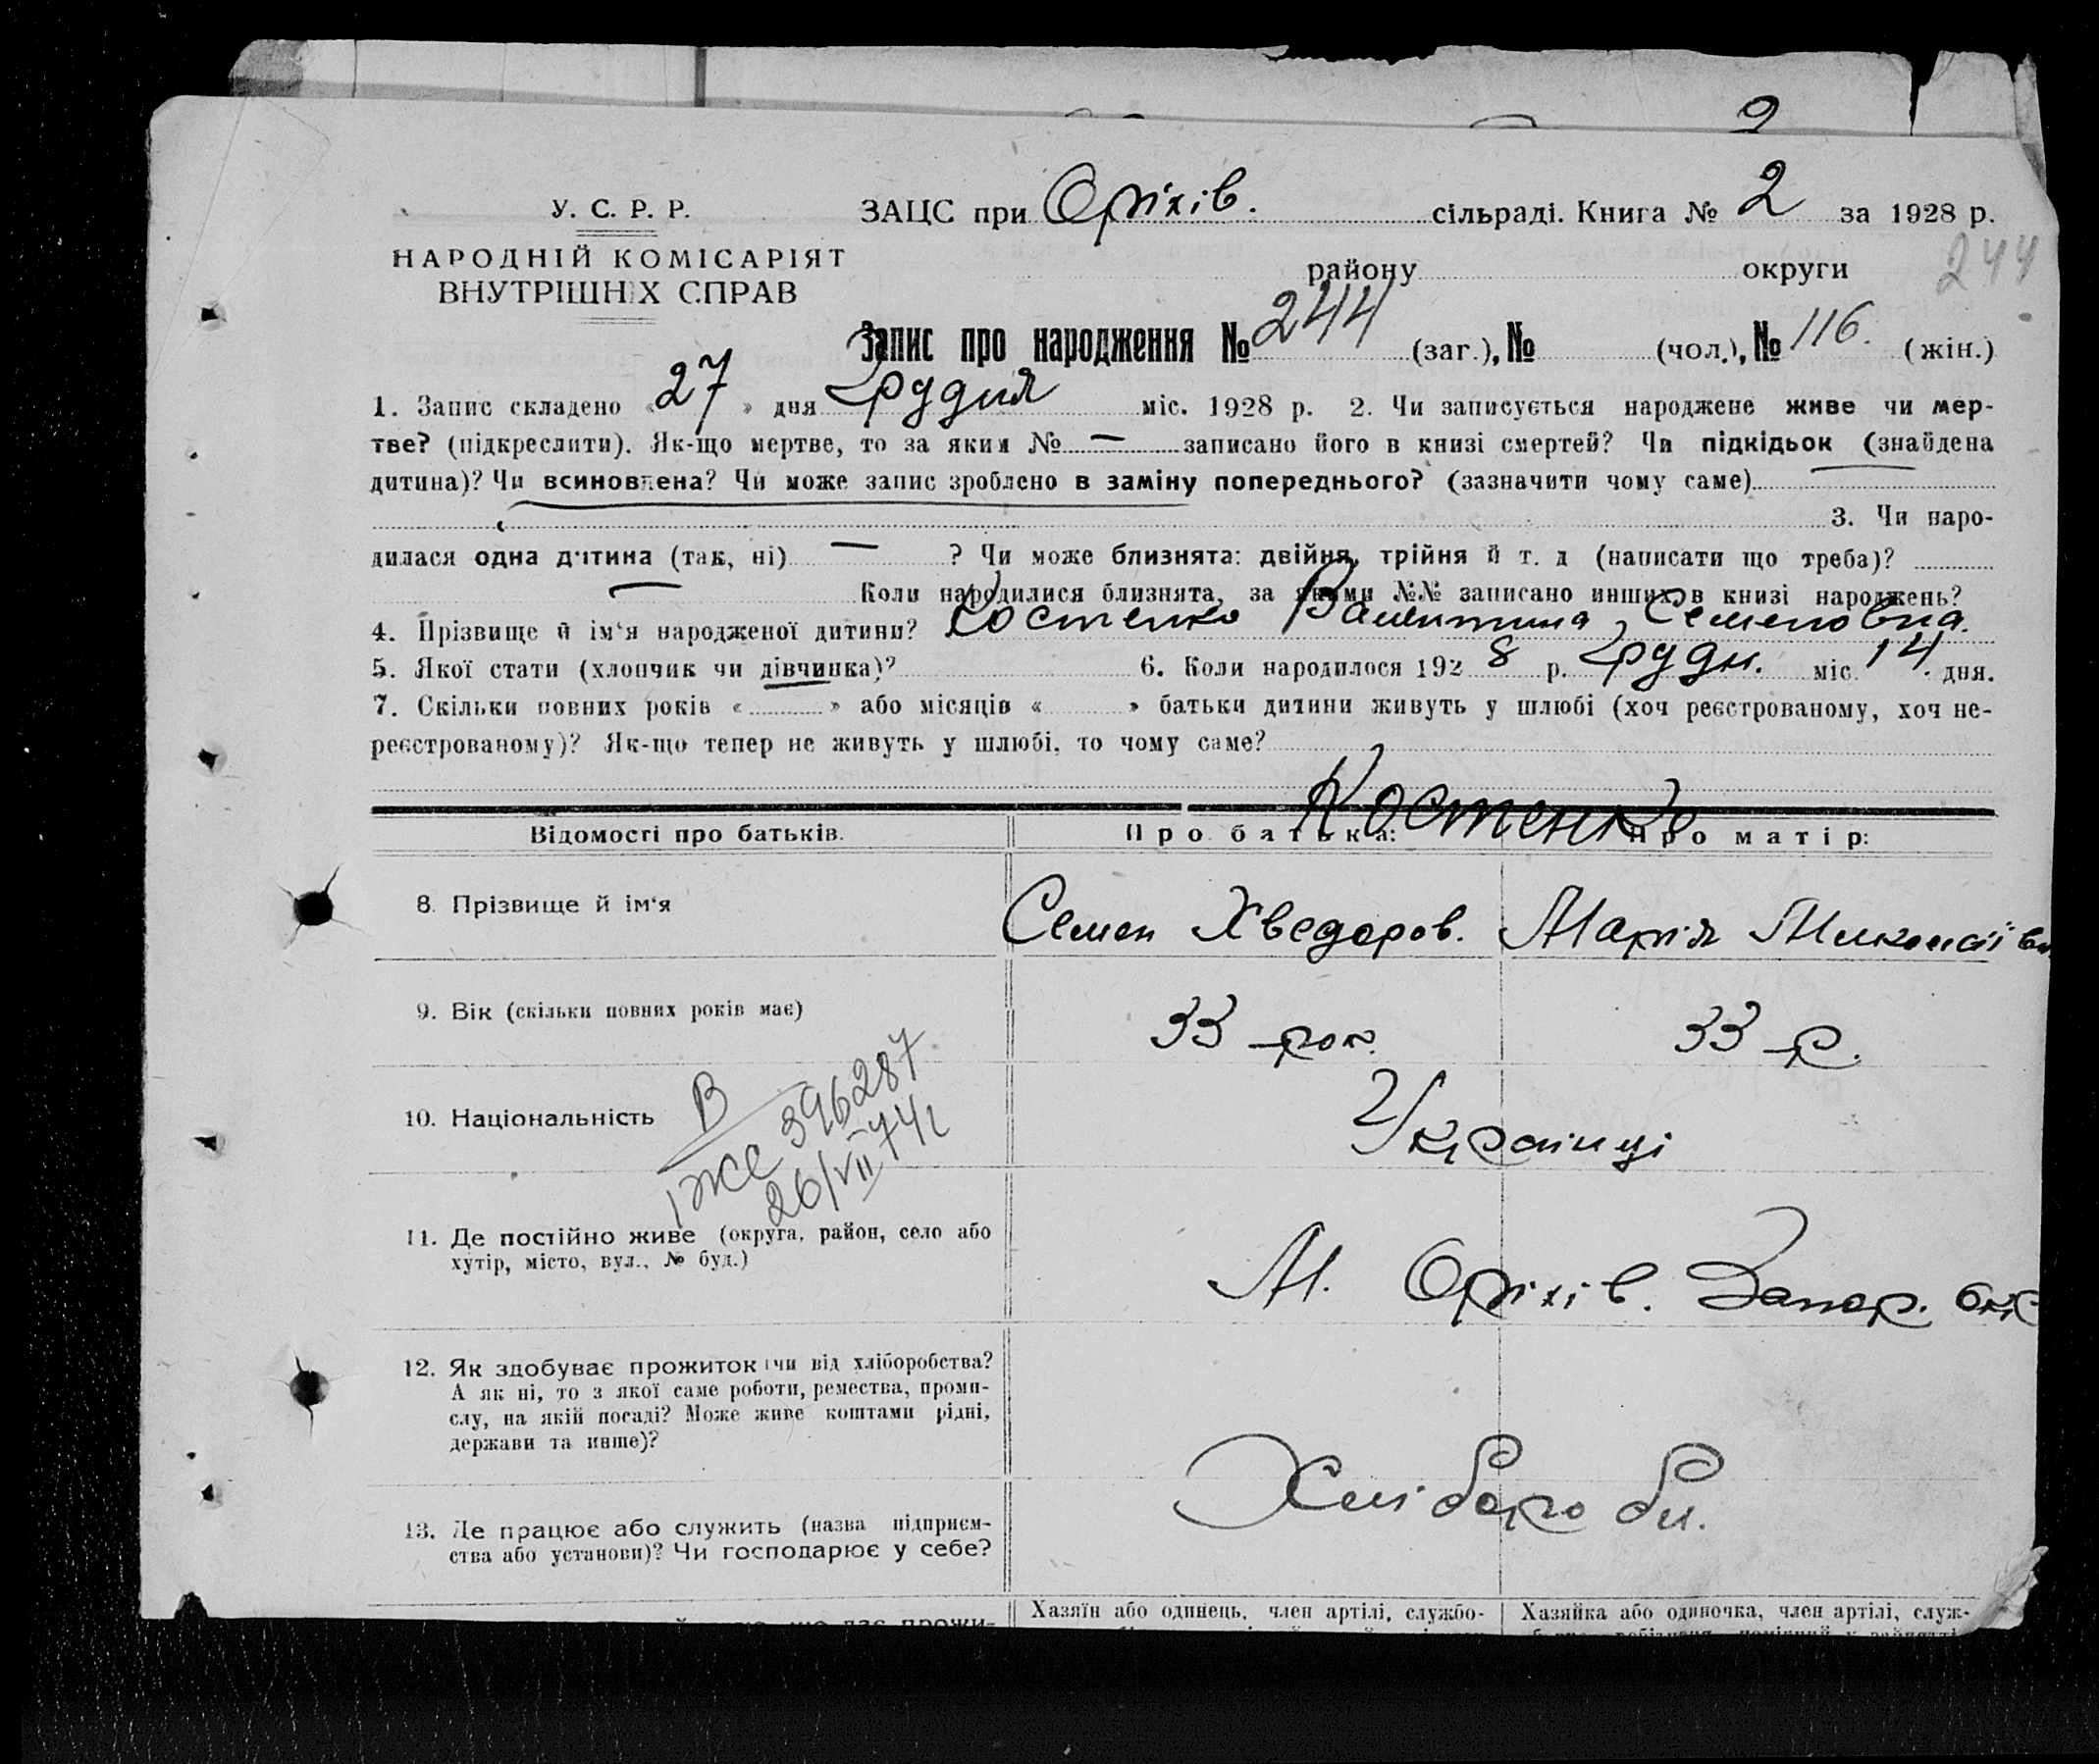 2
У. С. Р. Р. ЗАЦС при Оріхів. сільраді. Книга № 2 за 1928 р.
НАРОДНІЙ КОМІСАРІЯТ
ВНУТРІШНІХ СПРАВ
району округи 244
Запис про народження № 244 (заг.), № (чол.), № 116. (жін.)
1. Запис складено «27» дня Грудня міс. 1928 р. 2. Чи записується народжене живе чи мер-
тве? (підкреслити). Як-що мертве, то за яким № — записано його в книзі смертей? Чи підкідьок (знайдена
дитина)? Чи всиновлена? Чи може запис зроблено в заміну попереднього? (зазначити чому саме) —
3. Чи наро-
дилася одна дитина (так, ні) — ? Чи може близнята: двійня, трійня й т. д (написати що треба)?
— Коли народилися близнята, за якими №№ записано инших в книзі народжень?
4. Прізвище й ім'я народженої дитини? Костенко Валентина Семеновна.
5. Якої стати (хлопчик чи дівчинка)? 6. Коли народилося 1928 р. Грудн. міс. 14. дня.
7. Скільки повних років « » або місяців « » батьки дитини живуть у шлюбі (хоч реєстрованому, хоч не-
реєстрованому)? Як-що тепер не живуть у шлюбі, то чому саме?
Костенко
Відомості про батьків. Про батька: Про матір:
8. Прізвище й ім'я Семен Хведоров. Марія Миколаївн
9. Вік (скільки повних років має) 33 рок. 33 р.
10. Національність Українці
В
ІЖС 396287
26/VII 74
11. Де постійно живе (округа, район, село або
хутір, місто, вул., № буд.)
М. Оріхів. Запор. окр
12. Як здобуває прожиток (чи від хліборобства?
А як ні, то з якої саме роботи, ремества, проми-
слу, на якій посаді? Може живе коштами рідні,
держави та инше)?
Хлібороби.
13. Де працює або служить (назва підприєм-
ства або установи)? Чи господарює у себе?
Хазяїн або одинець, член артілі, службо- Хазяйка або одиночка, член артілі, служ-